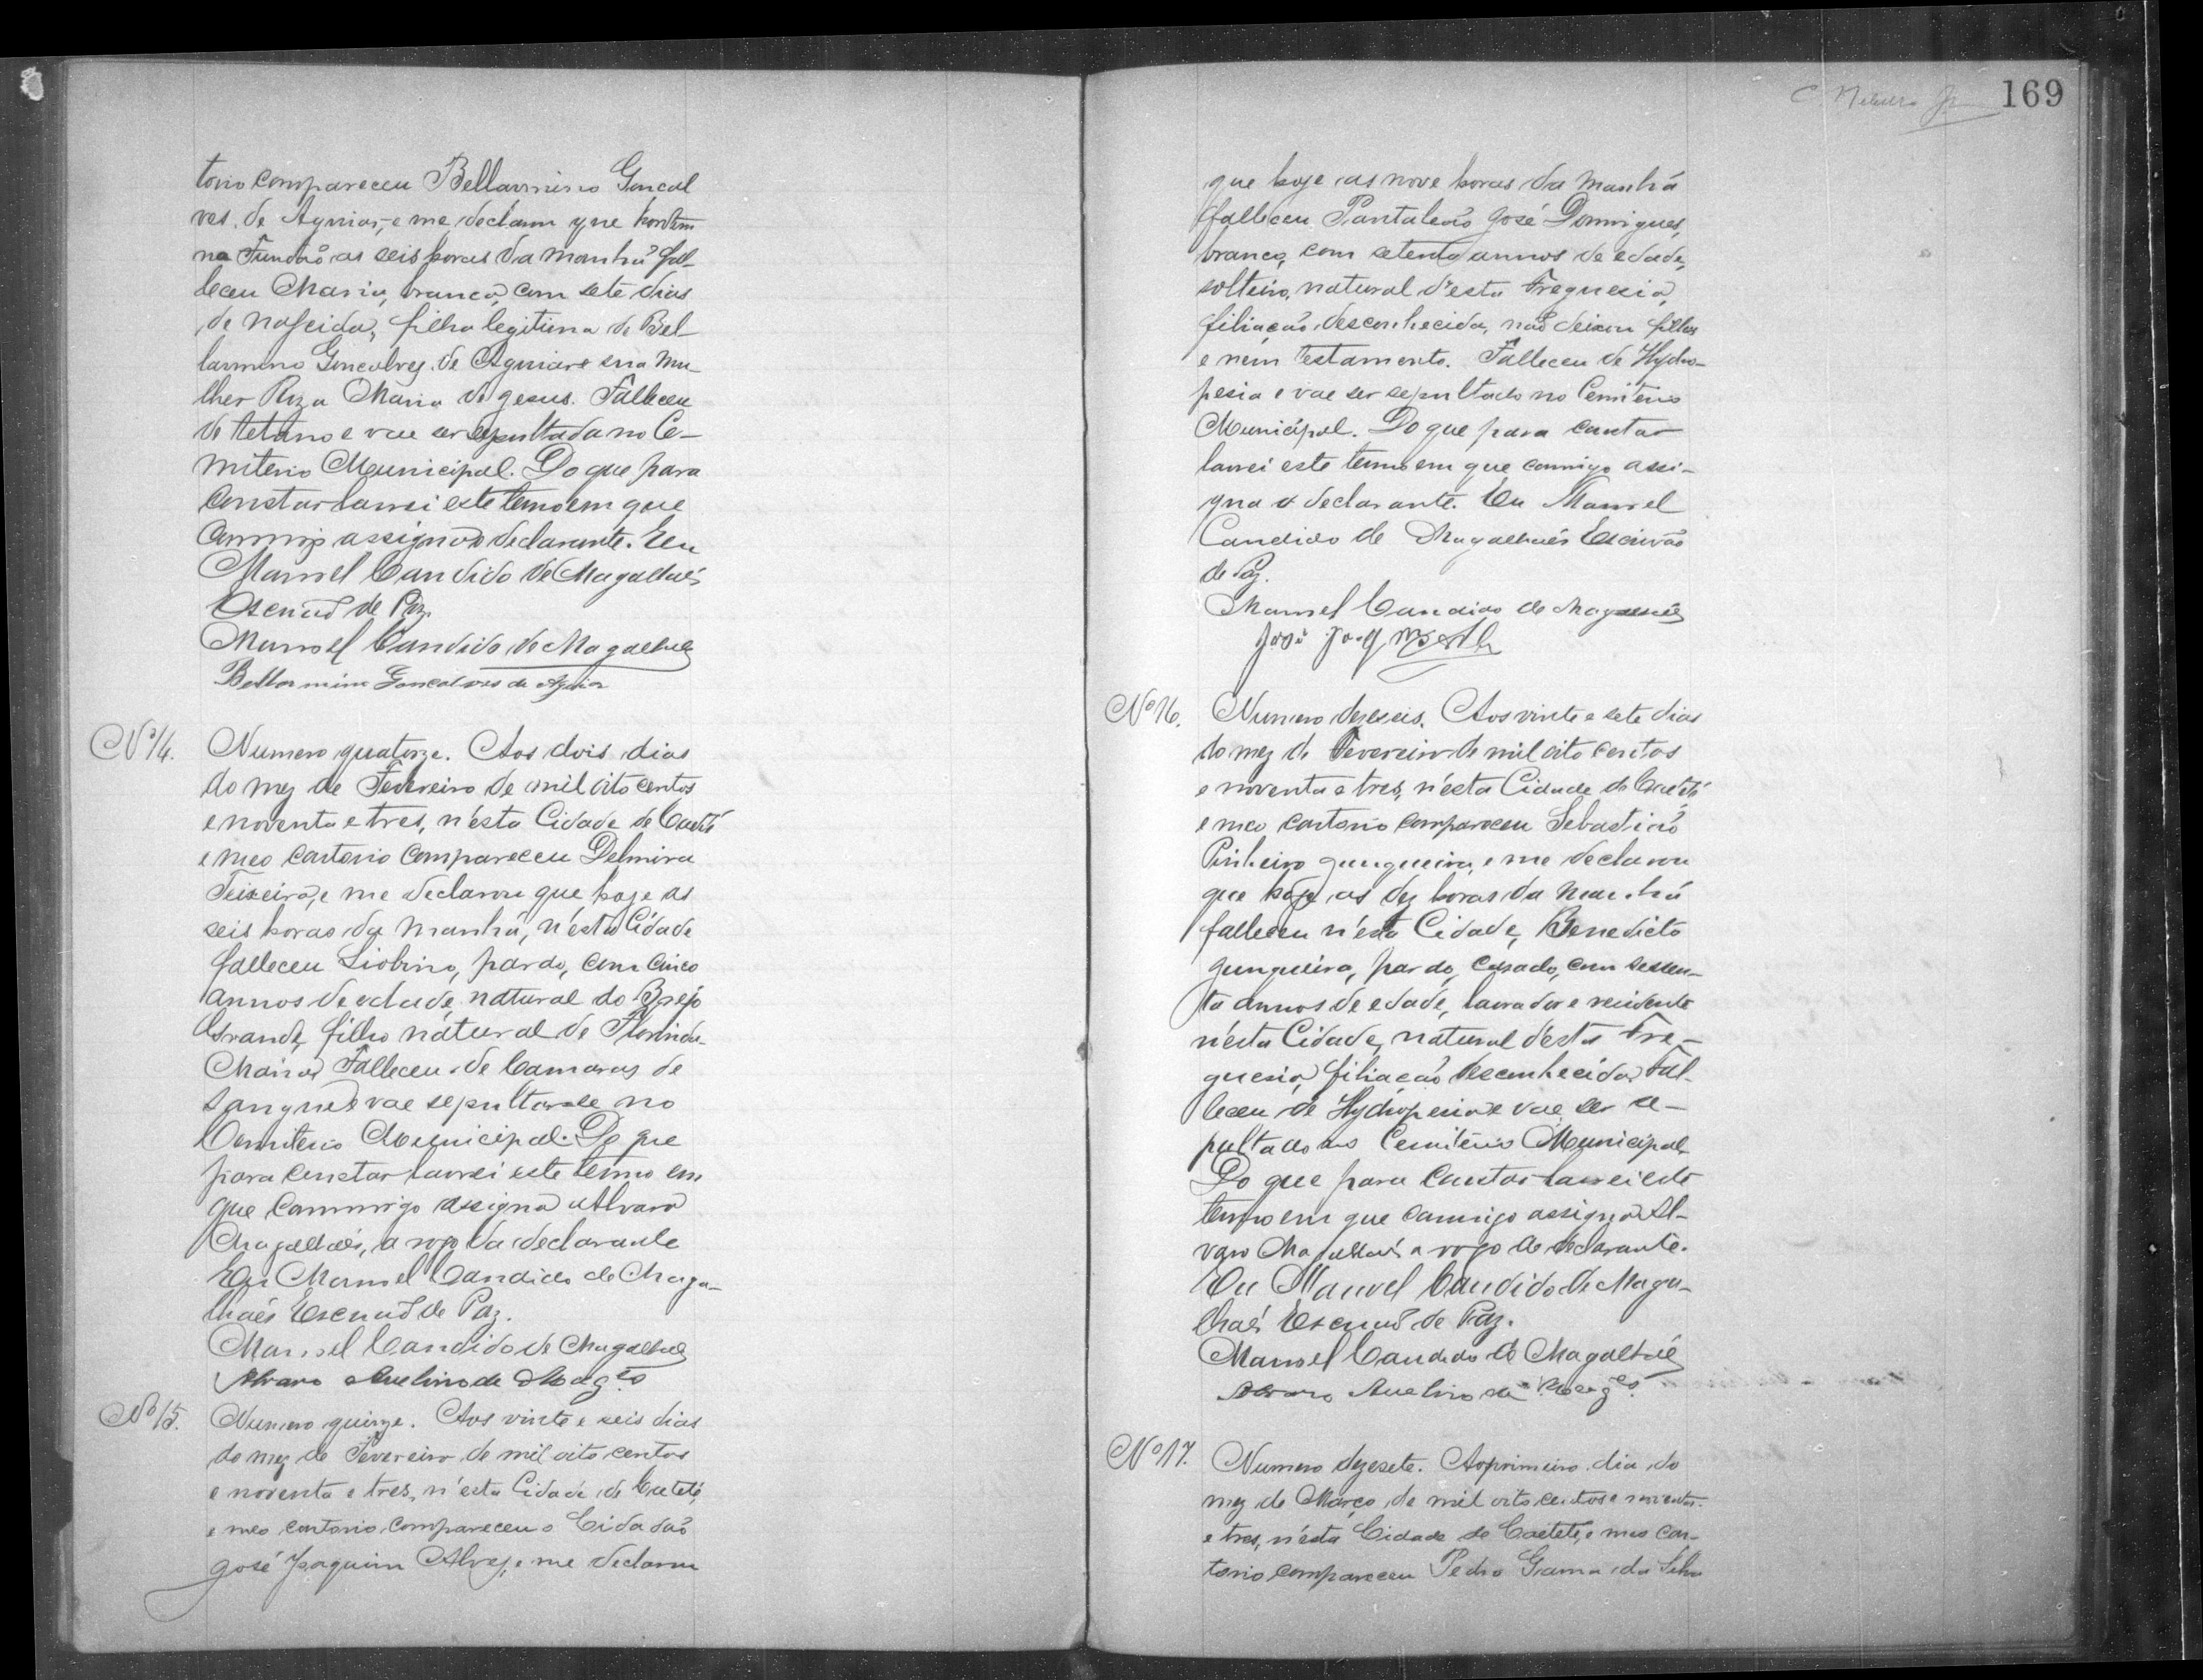 torio compareceu Bellarmino Goncal
ves de Aguiar, e me declarou que hontem
na Fundão as seis horas da manhã fal-
leceu Maria, branca, com sete dias
de nascida, filha legitima de Bel
larmino Goncalves de Aguiar e sua mu-
lher Roza Maria de Jesus. Falleceu
de tetano e vae ser sepultada no Ce-
miterio Municipal. Do que para
constar lavrei este termo em que
commigo assigna o declarante. Eu
Manoel Candido de Magalhães
Escrivão de Paz.
Manoel Candido de Magalhães
Bellarmino Goncalves de Aguiar
Nº 14. Numero quatorze. Aos dois dias
do mez de Fevereiro de mil oito centos
e noventa e tres, n'esta Cidade de Caeteté
e meo cartorio compareceu Delmira
Teixeira, e me declarou que hoje as
seis horas da manhã, n'esta Cidade
falleceu Liobino, pardo, com cinco
annos de edade, natural do Brejo
Grande, filho natural de Florinda
Maria. Falleceu de Camaras de
sangue e vae sepultar-se no
Cemiterio Municipal. Do que
para constar lavrei este termo em
que commigo assigna Alvaro
Magalhães, a rogo da declarante
Eu Manoel Candido de Maga-
lhães Escrivão de Paz.
Manoel Candido de Magalhães
Alvaro Avelino de Mag.es
Nº 15. Numero quinze. Aos vinte e seis dias
do mez de Fevereiro de mil oito centos
e noventa e tres, n'esta Cidade de Caeteté,
e meo cartorio compareceu o Cidadão
José Joaquim Alves, e me declarou
169
que hoje as nove horas da manhã
falleceu Pantaleão José Domingues,
branco, com setenta annos de edade,
solteiro, natural d'esta Freguesia,
filiação desconhecida, não deixou filhos
e nem testamento. Falleceu de Hydro-
pesia e vae ser sepultado no Cemiterio
Municipal. Do que para constar
lavrei este termo em que commigo assi-
gna o declarante. Eu Manoel
Candido de Magalhães Escrivão
de Paz.
Manoel Candido de Magalhães
José
Nº 16. Numero dezeseis. Aos vinte e sete dias
do mez de Fevereiro de mil oito centos
e noventa e tres, n'esta Cidade de Caeteté
e meo cartorio compareceu Sebastião
Pinheiro Junqueira, e me declarou
que hoje as dez horas da manhã
falleceu n'esta Cidade, Benedicto
Junqueira, pardo, casado, com sessen-
ta annos de edade, lavrador e residente
n'esta Cidade, natural d'esta Fre-
guesia, filiação desconhecida. Fal-
leceu de Hydropesia e vae ser se-
pultado no Cemiterio Municipal.
Do que para constar lavrei este
termo em que commigo assigna Al-
varo Magalhães a rogo do declarante.
Eu Manoel Candido de Maga-
lhães Escrivão de Paz.
Manoel Candido de Magalhães
Alvaro Avelino de Mag.es
Nº 17. Numero dezesete. Ao primeiro dia do
mez de Março de mil oito centos e noventa
e tres, n'esta Cidade de Caeteté, e meo car-
torio compareceu Pedro Gama da Silva